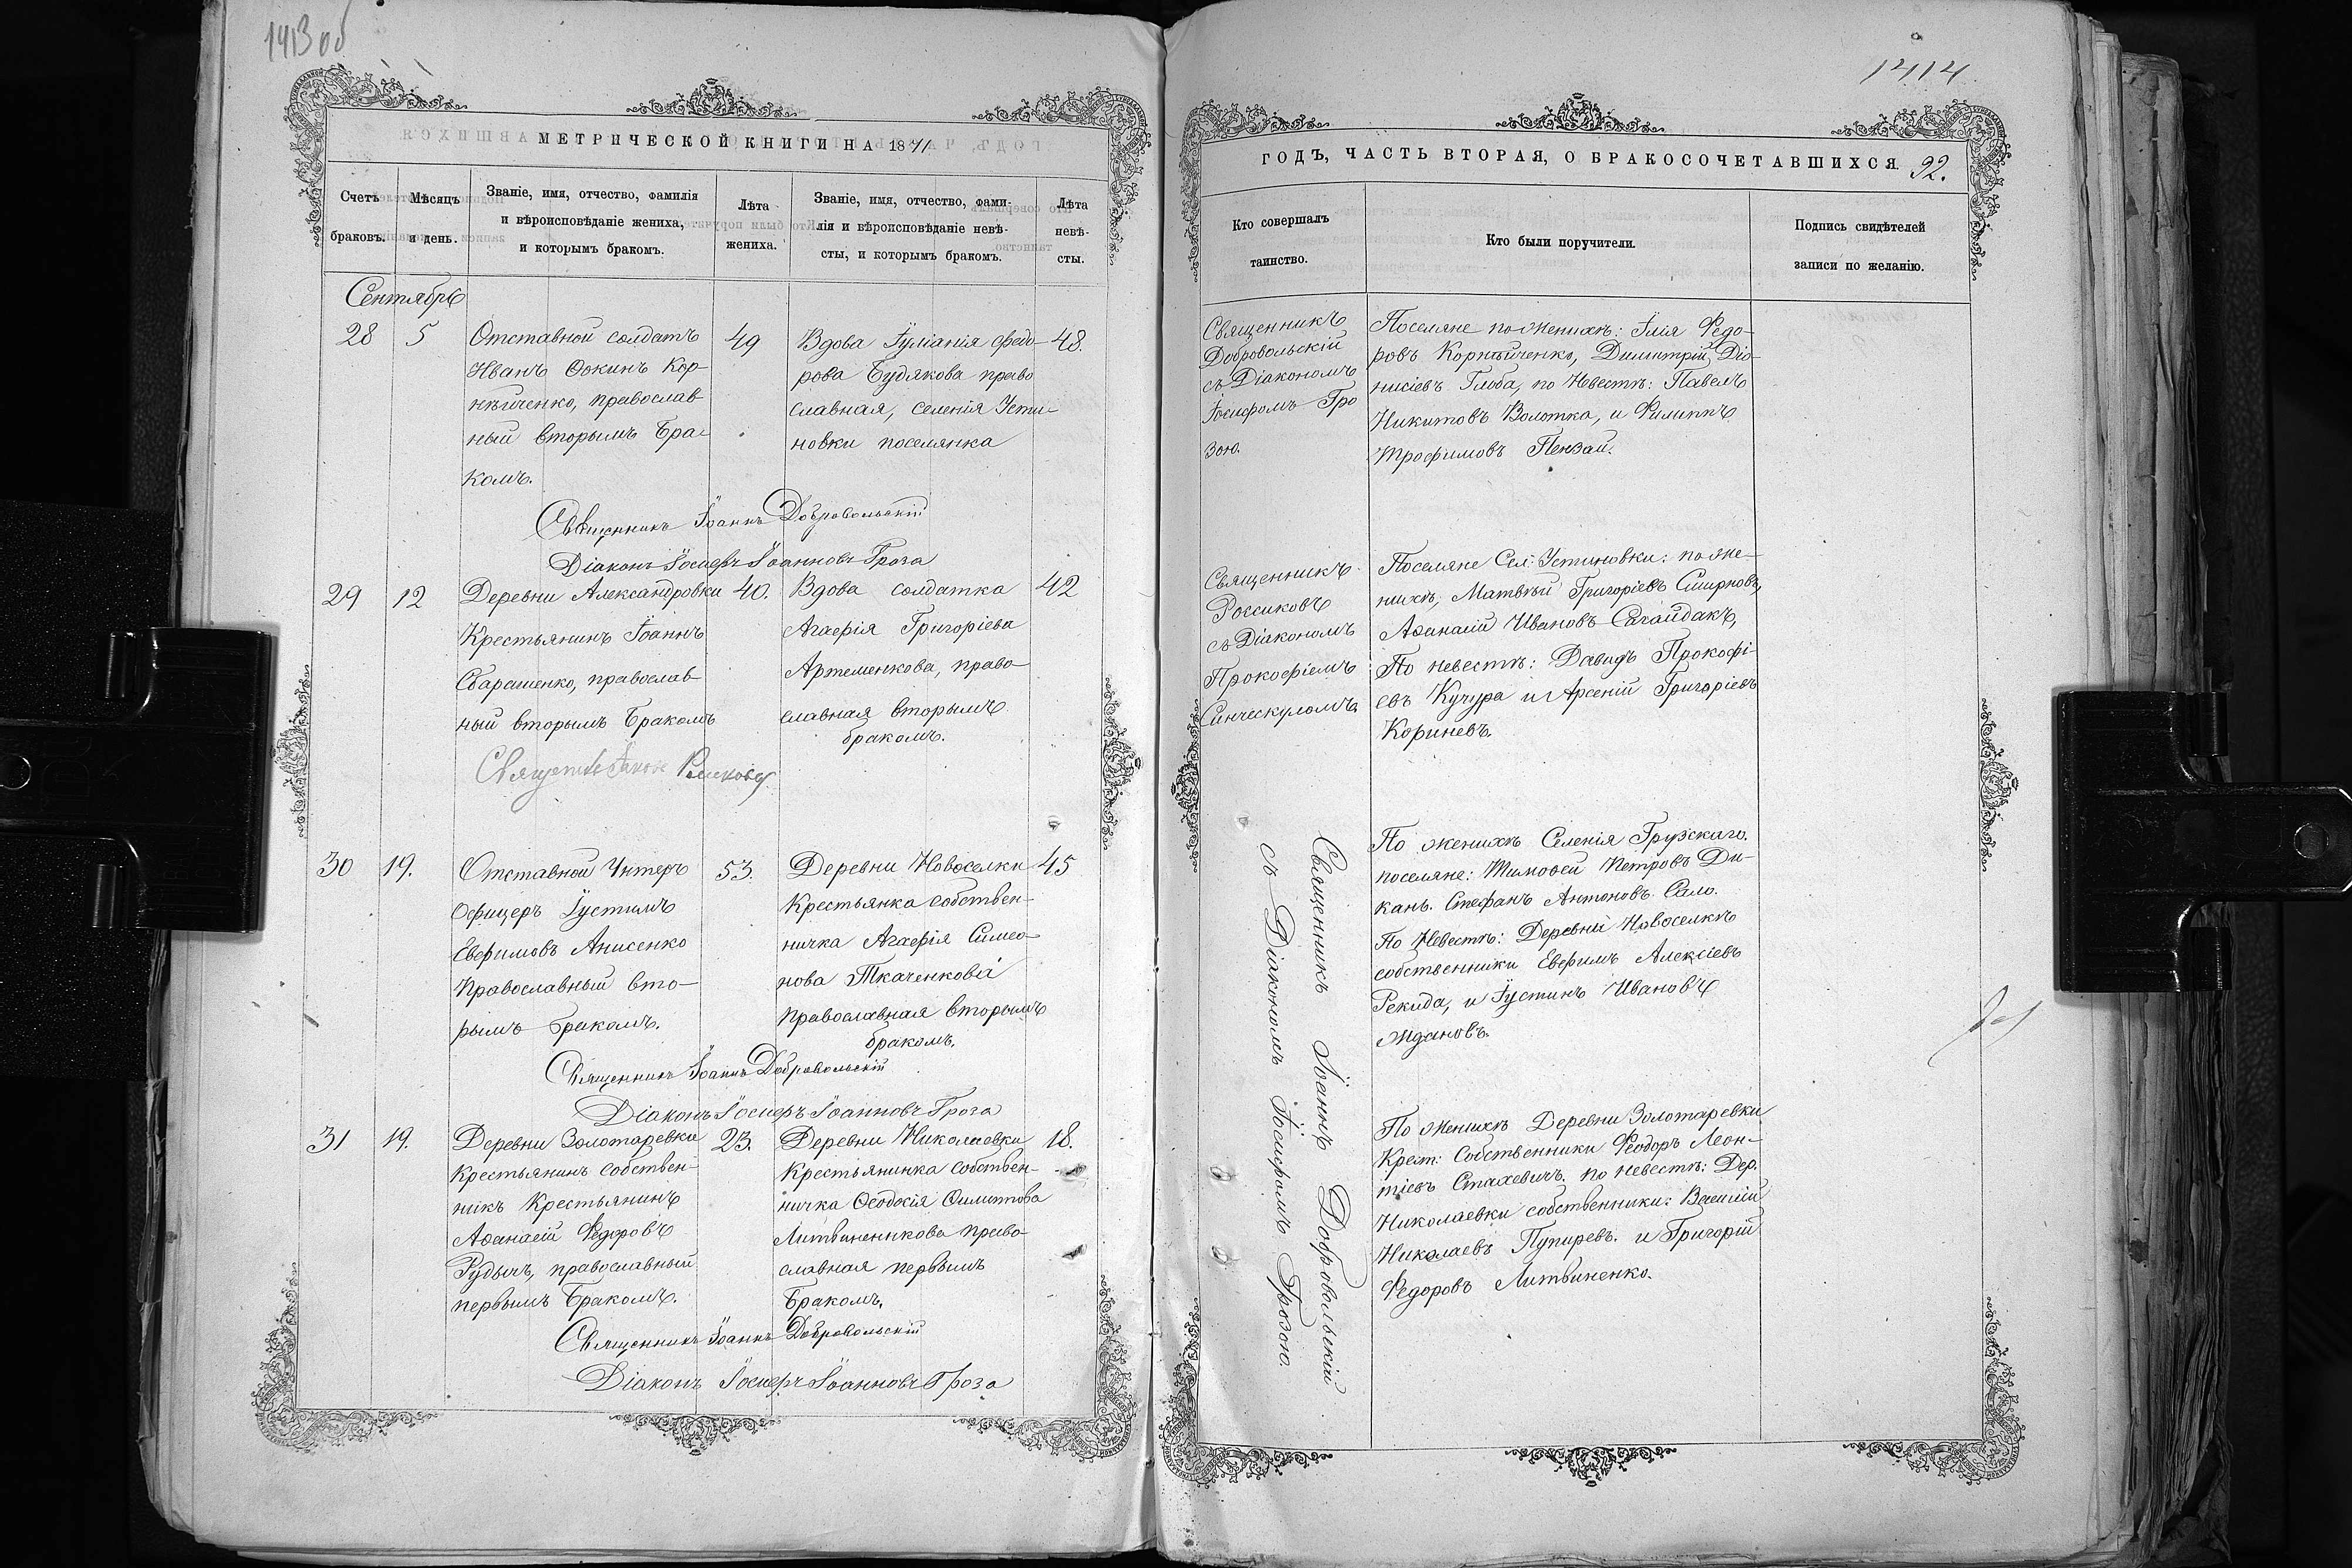 1413 об
МЕТРИЧЕСКОЙ КНИГИ НА 1871
Счетъ браковъ.
Мѣсяцъ и день.
Званіе, имя, отчество, фамилія
и вѣроисповѣданіе жениха,
и которымъ бракомъ.
Лѣта
жениха.
Званіе, имя, отчество, фами-
лія и вѣроисповѣданіе невѣ-
сты, и которымъ бракомъ.
Лѣта
невѣ-
сты.
Сентябрь
28
5
Отставной солдатъ
Иванъ Фокинъ Кор-
нѣйченко, православ
ный вторымъ бра-
комъ.
49
Вдова Іуліанія Федо-
рова Будякова право
славная, селенія Усти-
новки поселянка
48.
Священникъ Іоаннъ Добровольскій
Діаконъ Іосифъ Іоанновъ Гроза
29
12
Деревни Александровки
Крестьянинъ Іоаннъ
Сбарашенко, православ-
ный вторымъ бракомъ
40.
Вдова солдатка
Агафія Григоріева
Артеменкова, право-
славная вторымъ
бракомъ.
42
30
19.
Отставной Унтеръ
Офицеръ Іустинъ
Евфимовъ Анисенко
Православный вто-
рымъ бракомъ.
53.
Деревни Новоселки
Крестьянка собствен-
ничка Агафія Симео-
нова Ткаченкова
Православная вторымъ
бракомъ.
45
Священникъ Іоаннъ Добровольскій
Діаконъ Іосифъ Іоанновъ Гроза
31
19.
Деревни Золотаревки
Крестьянинъ собствен-
никъ Крестьянинъ
Аѳанасій Федоровъ
Рудычъ, православный
первымъ бракомъ.
23.
Деревни Николаевки
Крестьянинка собствен-
ничка Ѳеодосія Филипова
Литвиненкова право-
славная первымъ
бракомъ.
18.
Священникъ Іоаннъ Добровольскій
Діаконъ Іосифъ Іоанновъ Гроза
1414
ГОДЪ, ЧАСТЬ ВТОРАЯ, О БРАКОСОЧЕТАВШИХСЯ.
92.
Кто совершалъ
таинство.
Кто были поручители.
Подпись свидѣтелей
записи по желанію.
Священникъ
Добровольскій
съ Діакономъ
Іосифомъ Гро
зою.
Поселяне по Женихѣ: Илія Федо-
ровъ Корнѣйченко, Димитрій Діо-
нисіевъ Глоба, по Невѣстѣ: Павелъ
Никитовъ Волотка, и Филиппъ
Трофимовъ Пензай.
Священникъ
Россиковъ
съ Діакономъ
Прокофіемъ
Синческуломъ
Поселяне Сел: Устиновки: по Же-
нихѣ, Матвѣй Григоріевъ Смирновъ,
Аѳанасій Ивановъ Сагайдакъ,
По невестѣ: Давидъ Прокофі-
евъ Кучура и Арсеній Григоріевъ
Кориневъ.
Священникъ Іоаннъ Добровольскій
съ Діакономъ Іосифомъ Грозою.
По женихѣ Селенія Грузскаго.
поселяне: Тимофей Петровъ Ди-
канъ. Стефанъ Антоновъ Сало.
По Невестѣ: Деревни Новоселки
собственники Евфимъ Алексіевъ
Рекида, и Іустинъ Ивановъ
Ждановъ.
По Женихѣ Деревни Золотаревки
Крест: Собственники Феодоръ Леон-
тіевъ Стахевичъ. по невестѣ: Дер.
Николаевки собственники: Василій
Николаевъ Пупиревъ. и Григорій
Федоровъ Литвиненко.